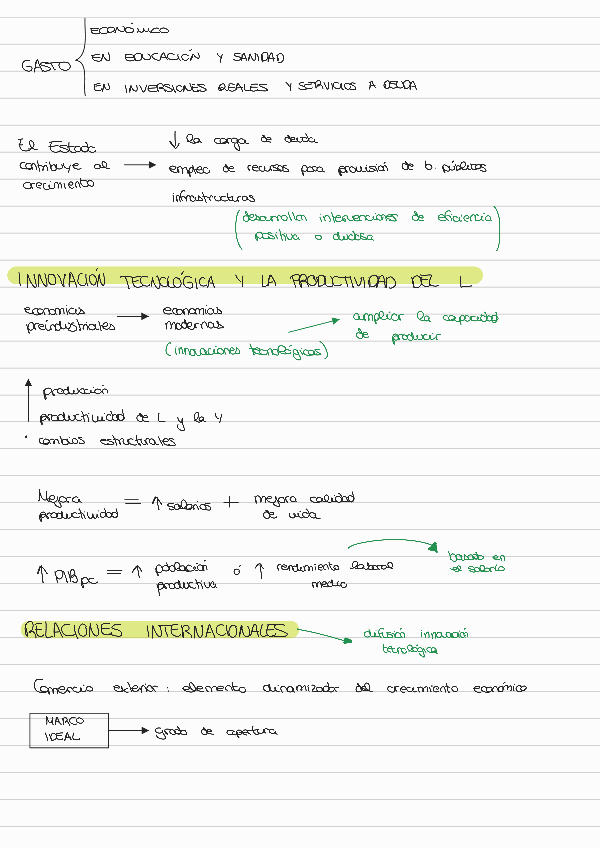 GASTO
ECONÓMICO
EN EDUCACIÓN Y SANIDAD
EN INVERSIONES REALES Y SERVICIOS A DEUDA
El Estado
contribuye al
crecimiento
→
↓ la carga de deuda
empleo de recursos para provisión de b. públicos
infraestructuras
(desarrollan intervenciones de eficiencia
positiva o dudosa)
INNOVACIÓN TECNOLÓGICA Y LA PRODUCTIVIDAD DEL L
economías
preindustriales
→
economías
modernas
(innovaciones tecnológicas)
ampliar la capacidad
de producir
↑ producción
productividad de L y la Y
· cambios estructurales
Mejora
productividad
= ↑ salarios +
mejora calidad
de vida
↑ PIBpc = ↑
población
productiva
ó ↑
rendimiento laboral
medio
basado en
el salario
RELACIONES INTERNACIONALES
difusión innovación
tecnológica
Comercio exterior: elemento dinamizador del crecimiento económico
MARCO
IDEAL
→ grado de apertura